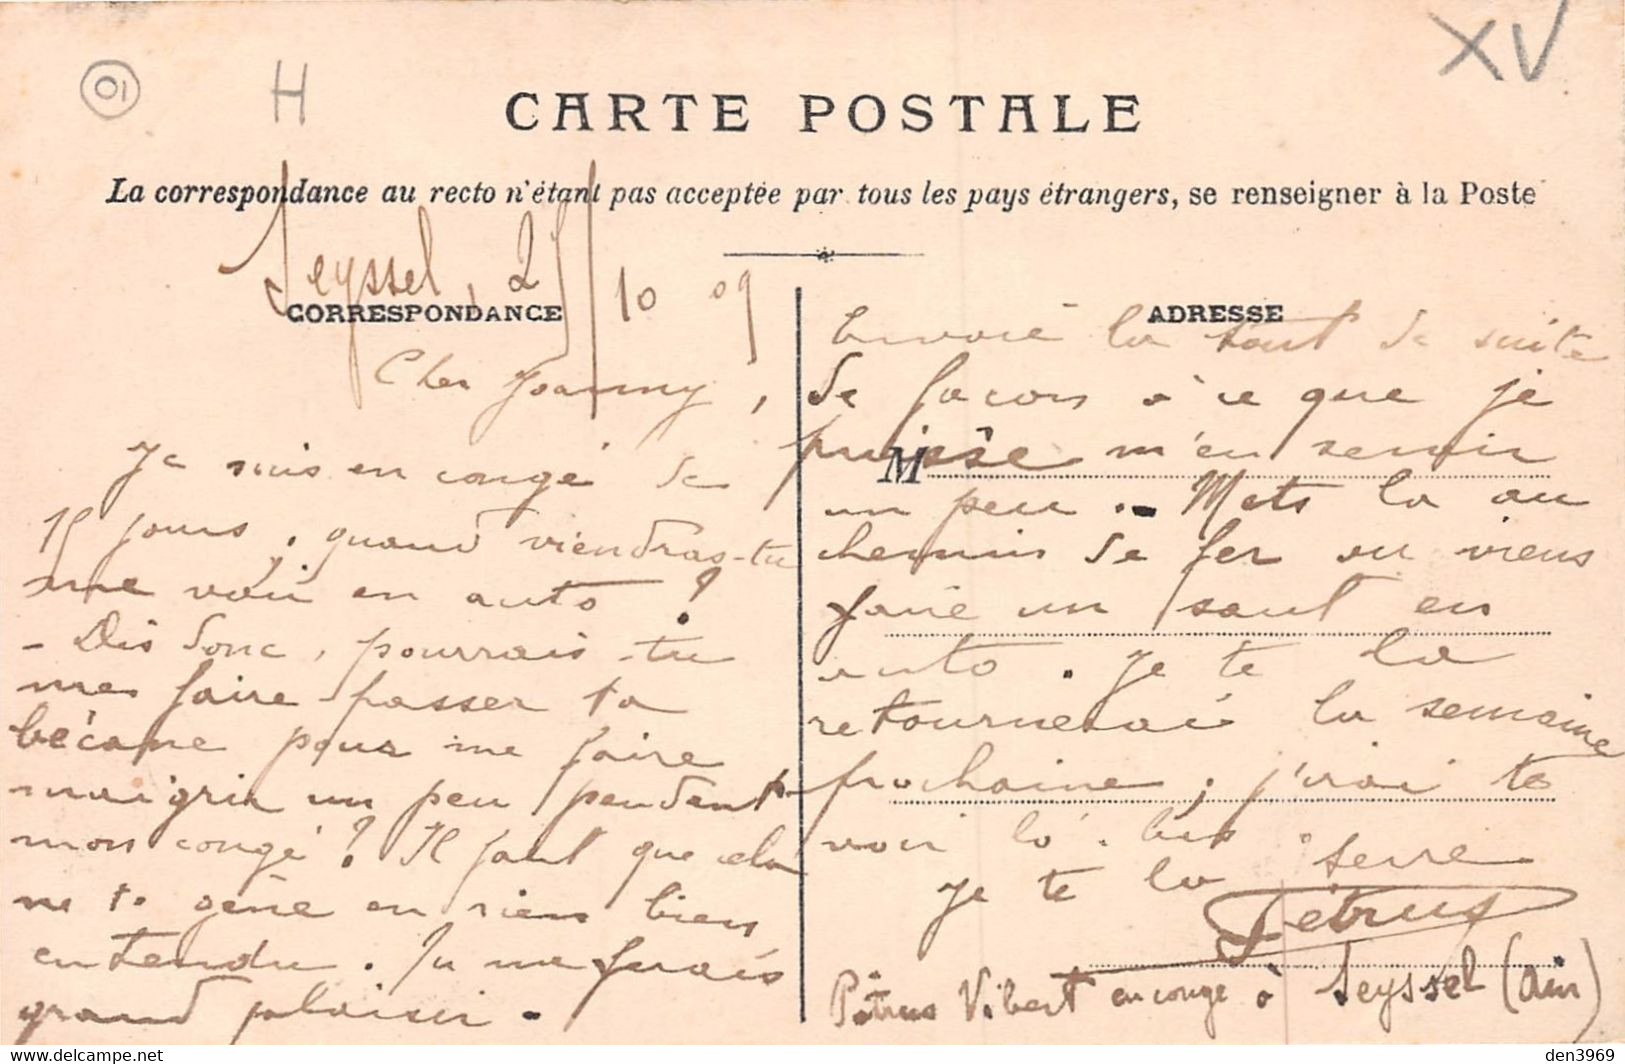 01 H XV
CARTE POSTALE
La correspondance au recto n'étant pas acceptée par tous les pays étrangers, se renseigner à la Poste
Seyssel, 25/10 09
CORRESPONDANCE
Cher Joanny,
Je suis en congé de
15 jours, quand viendras-tu
me voir en auto ?
- Dis donc, pourrais-tu
me faire passer ta
bécane pour me faire
maigrir un peu pendant
mon congé ? Il faut que cela
ne te gêne en rien bien
entendu. Tu me ferais
grand plaisir.
ADRESSE
Envoie la tout de suite
de façon à ce que je
puisse m'en servir
M
un peu. - Mets la au
chemin de fer ou viens
faire un saut en
auto. Je te la
retournerai la semaine
prochaine, j'irai te
voir là-bas
Je te la serre
Pétrus
Pétrus Vibert en congé à Seyssel (Ain)
den3969